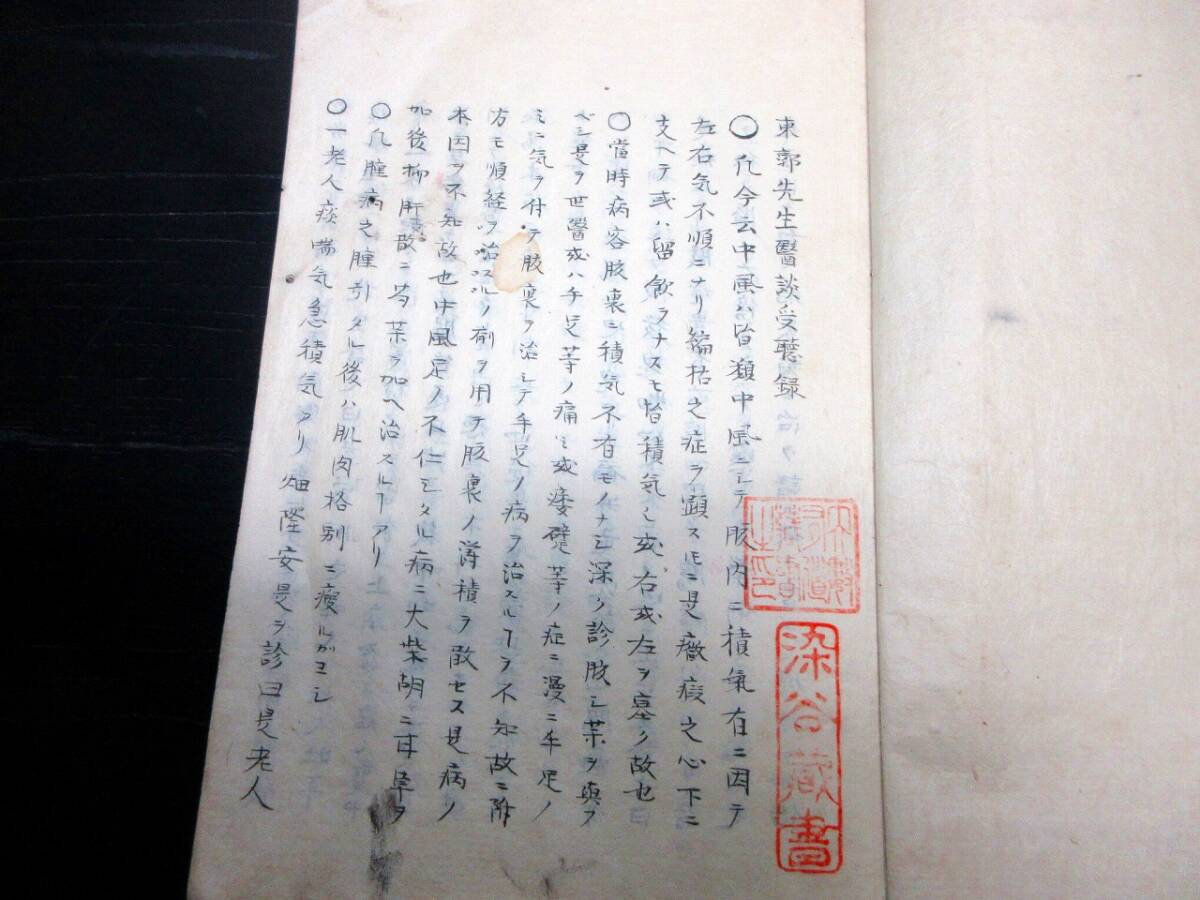 東郭先生醫談受聽録
〇凡今云中風ハ皆瀕中風ニシテ腹内ニ積氣有ニ因テ
左右気不順ニナリ編枯之症ヲ顕スモニ是癥瘕之心下ニ
支ヘテ或ハ留飲ヲナスモ皆積気也或右或左ヲ塞ク故也
〇當時病客腹裏ニ積気不有モノナシ深ク診腹シ薬ヲ與フ
ベシ是ヲ世醫或ハ手足等ノ痛ミ或痿躄等ノ症ニ漫ニ手足ノ
ミニ気ヲ付テ腹裏ヲ治シテ手足ノ病ヲ治スルヿヲ不知故ニ附
方モ順経ヲ治スルノ剤ヲ用テ腹裏ノ滞積ヲ散セス是病ノ
本因ヲ不知故也中風足ノ不仁シタル病ニ大柴胡ニ甘草ヲ
加後抑肝散ニ芍薬ヲ加ヘ治スルヿアリ
〇凡腫病之腫引タル後ハ肌肉格別ニ瘦ルガヨシ
〇一老人痰喘気急積気アリ畑隆安是ヲ診曰是老人
染谷蔵書